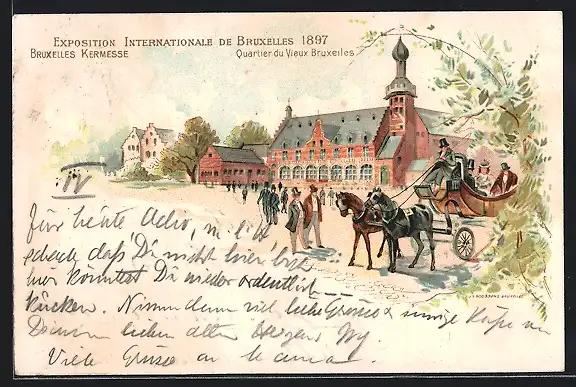 EXPOSITION INTERNATIONALE DE BRUXELLES 1897
BRUXELLES KERMESSE
Quartier du Vieux Bruxelles
IV
Für heute Adio,
schade daß Du nicht hier bist
hier könntest Du wieder ordentlich
kücken. Nimm denn viel liebe Grüsse & innige Küsse von
Deinem lieben alten
Viele Grüsse an